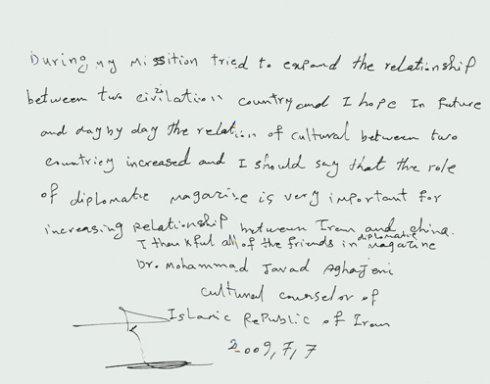 During my mission tried to expand the relationship
between two civilation country and I hope In future
and day by day the relation of cultural between two
countriey increased and I should say that the role
of diplomatic magazine is very important for
increasing Relationship between Iran and china.
I thankful all of the friends in diplomatic magazine
Dr. Mohammad Javad Aghajeni
cultural counselor of
Islamic Republic of Iran
2009, 7, 7